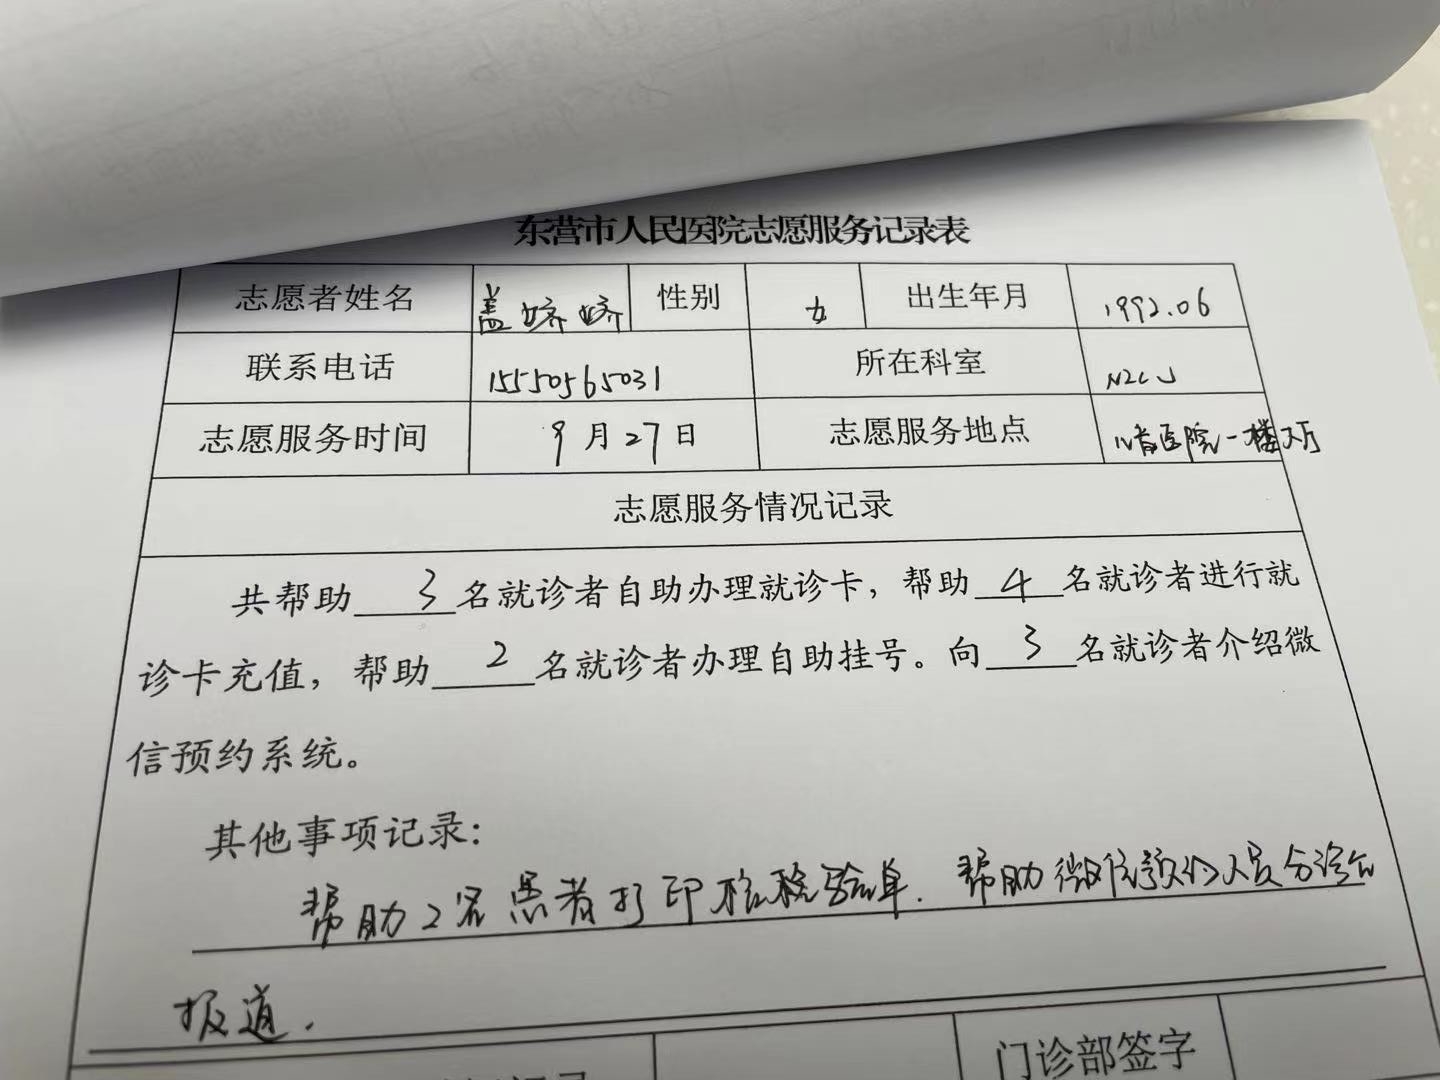 东营市人民医院志愿服务记录表
志愿者姓名 盖娇娇 性别 女 出生年月 1992.06
联系电话 15550565031 所在科室 NICU
志愿服务时间 9月27日 志愿服务地点 省医院一楼大厅
志愿服务情况记录
共帮助 3 名就诊者自助办理就诊卡，帮助 4 名就诊者进行就
诊卡充值，帮助 2 名就诊者办理自助挂号。向 3 名就诊者介绍微
信预约系统。
其他事项记录：
帮助2名患者打印检验单.帮助微信预约人员分诊台
报道.
门诊部签字